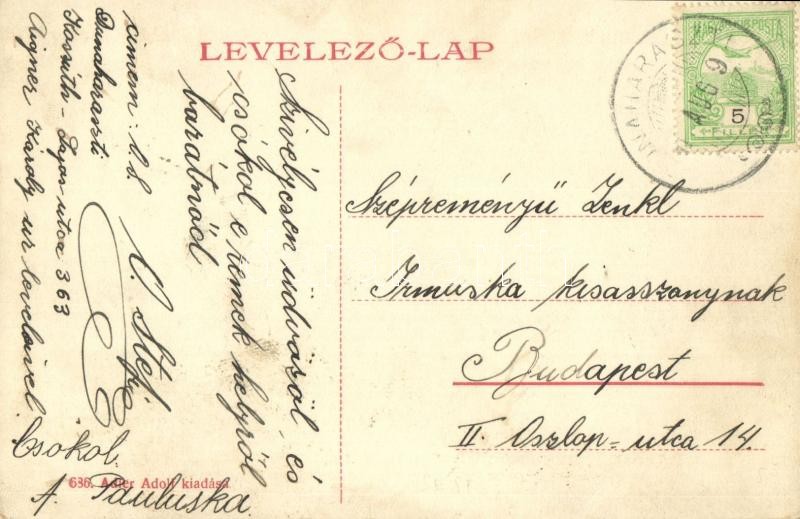 LEVELEZŐ-LAP
MAGYAR KIR. POSTA
5
FILLÉR
UNAHARAS
AUG 9
Szívélyesen üdvözöl és
csókol e remek helyről
barátnőd
Stef.
címem: l. l.
Dunaharaszti
Kossuth-Lajos utca 363
Aigner Károly ur levelével
Csokol
A. Pauluska
686. Adler Adolf kiadása
Szépreményű Zenkl
Irmuska kisasszonynak
Budapest
II. Oszlop-utca 14.